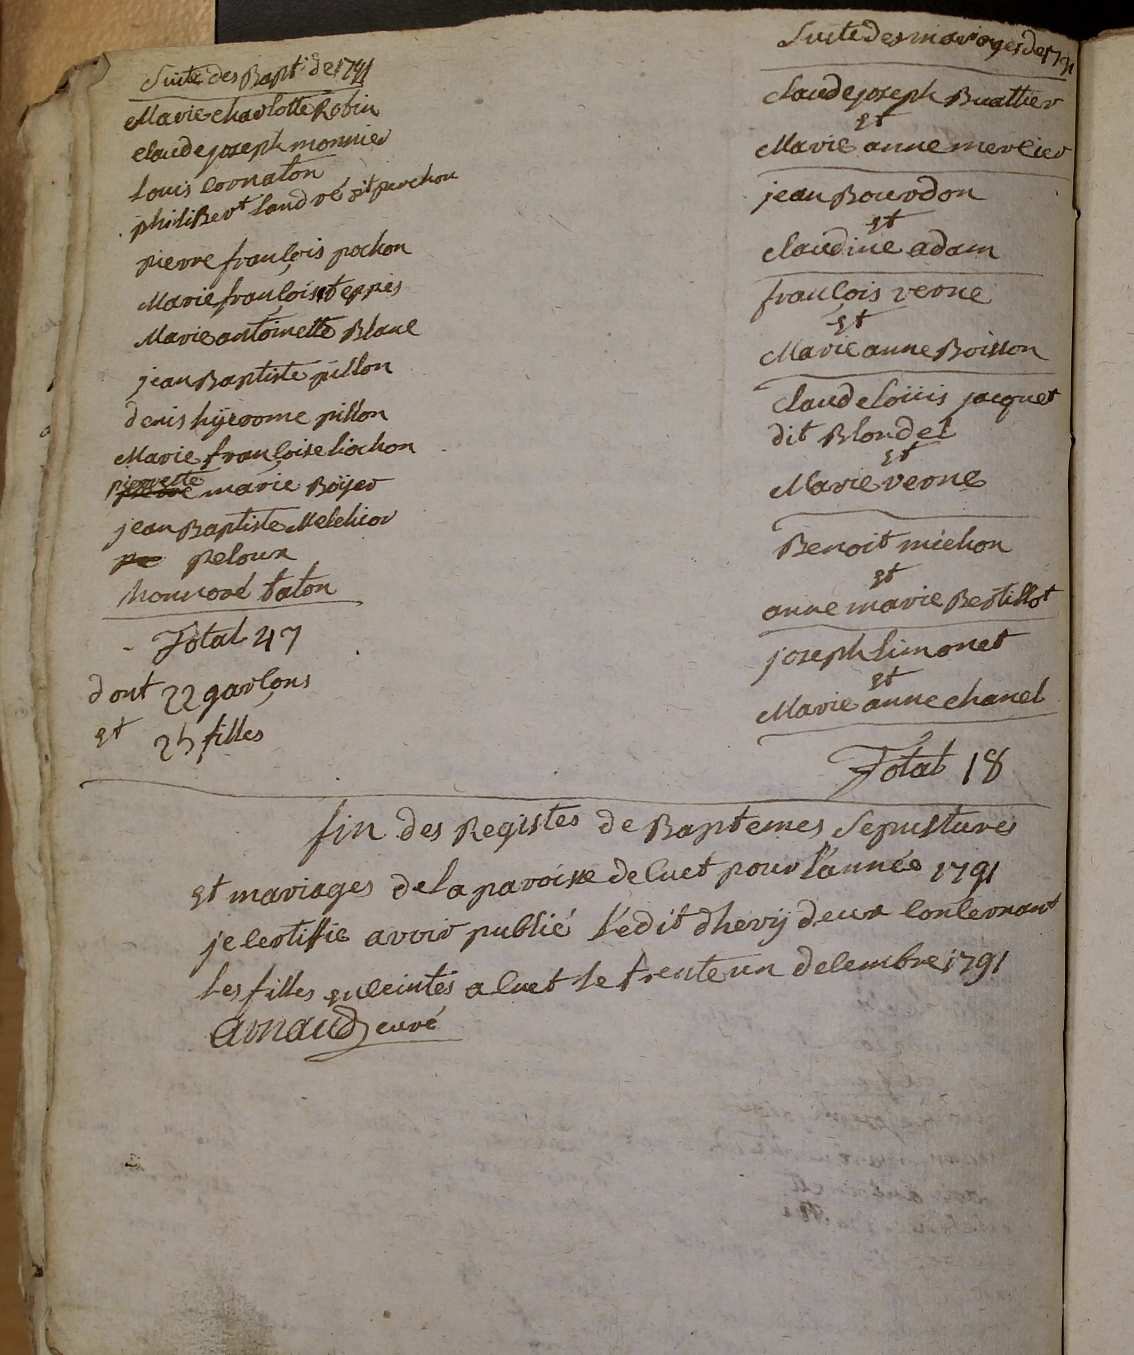 Suite des Bapt. de 1791
Marie charlotte Robin
claude joseph monnier
Louis cornaton
philiBert Landré dit perchon
pierre françois pochon
Marie françoise teppes
Marie antoinette Blanc
jean Baptiste pillon
denis hyeroome pillon
Marie françoise liochon
pierrette marie Boÿer
jean Baptiste Melchior
peloux
honnoré taton
Total 47
dont 22 garçons
et 25 filles
Suite des mariages de 1791
claude joseph Buattier
et
Marie anne mercier
jean Bourdon
et
claudine adam
françois verne
et
Marie anne Boisson
claude Loüis jacquet
dit Blondel
et
Marie verne
Benoit michon
et
anne marie Bertillot
joseph Limonet
et
Marie anne chanel
Total 18
fin des Registes de Baptemes Sepultures
et mariages de la paroisse de Cuet pour l'année 1791
je certiffie avoir publié l'edit dhenrÿ deux concernant
les filles enceintes a Cuet le trente un decembre 1791
arnaud curé